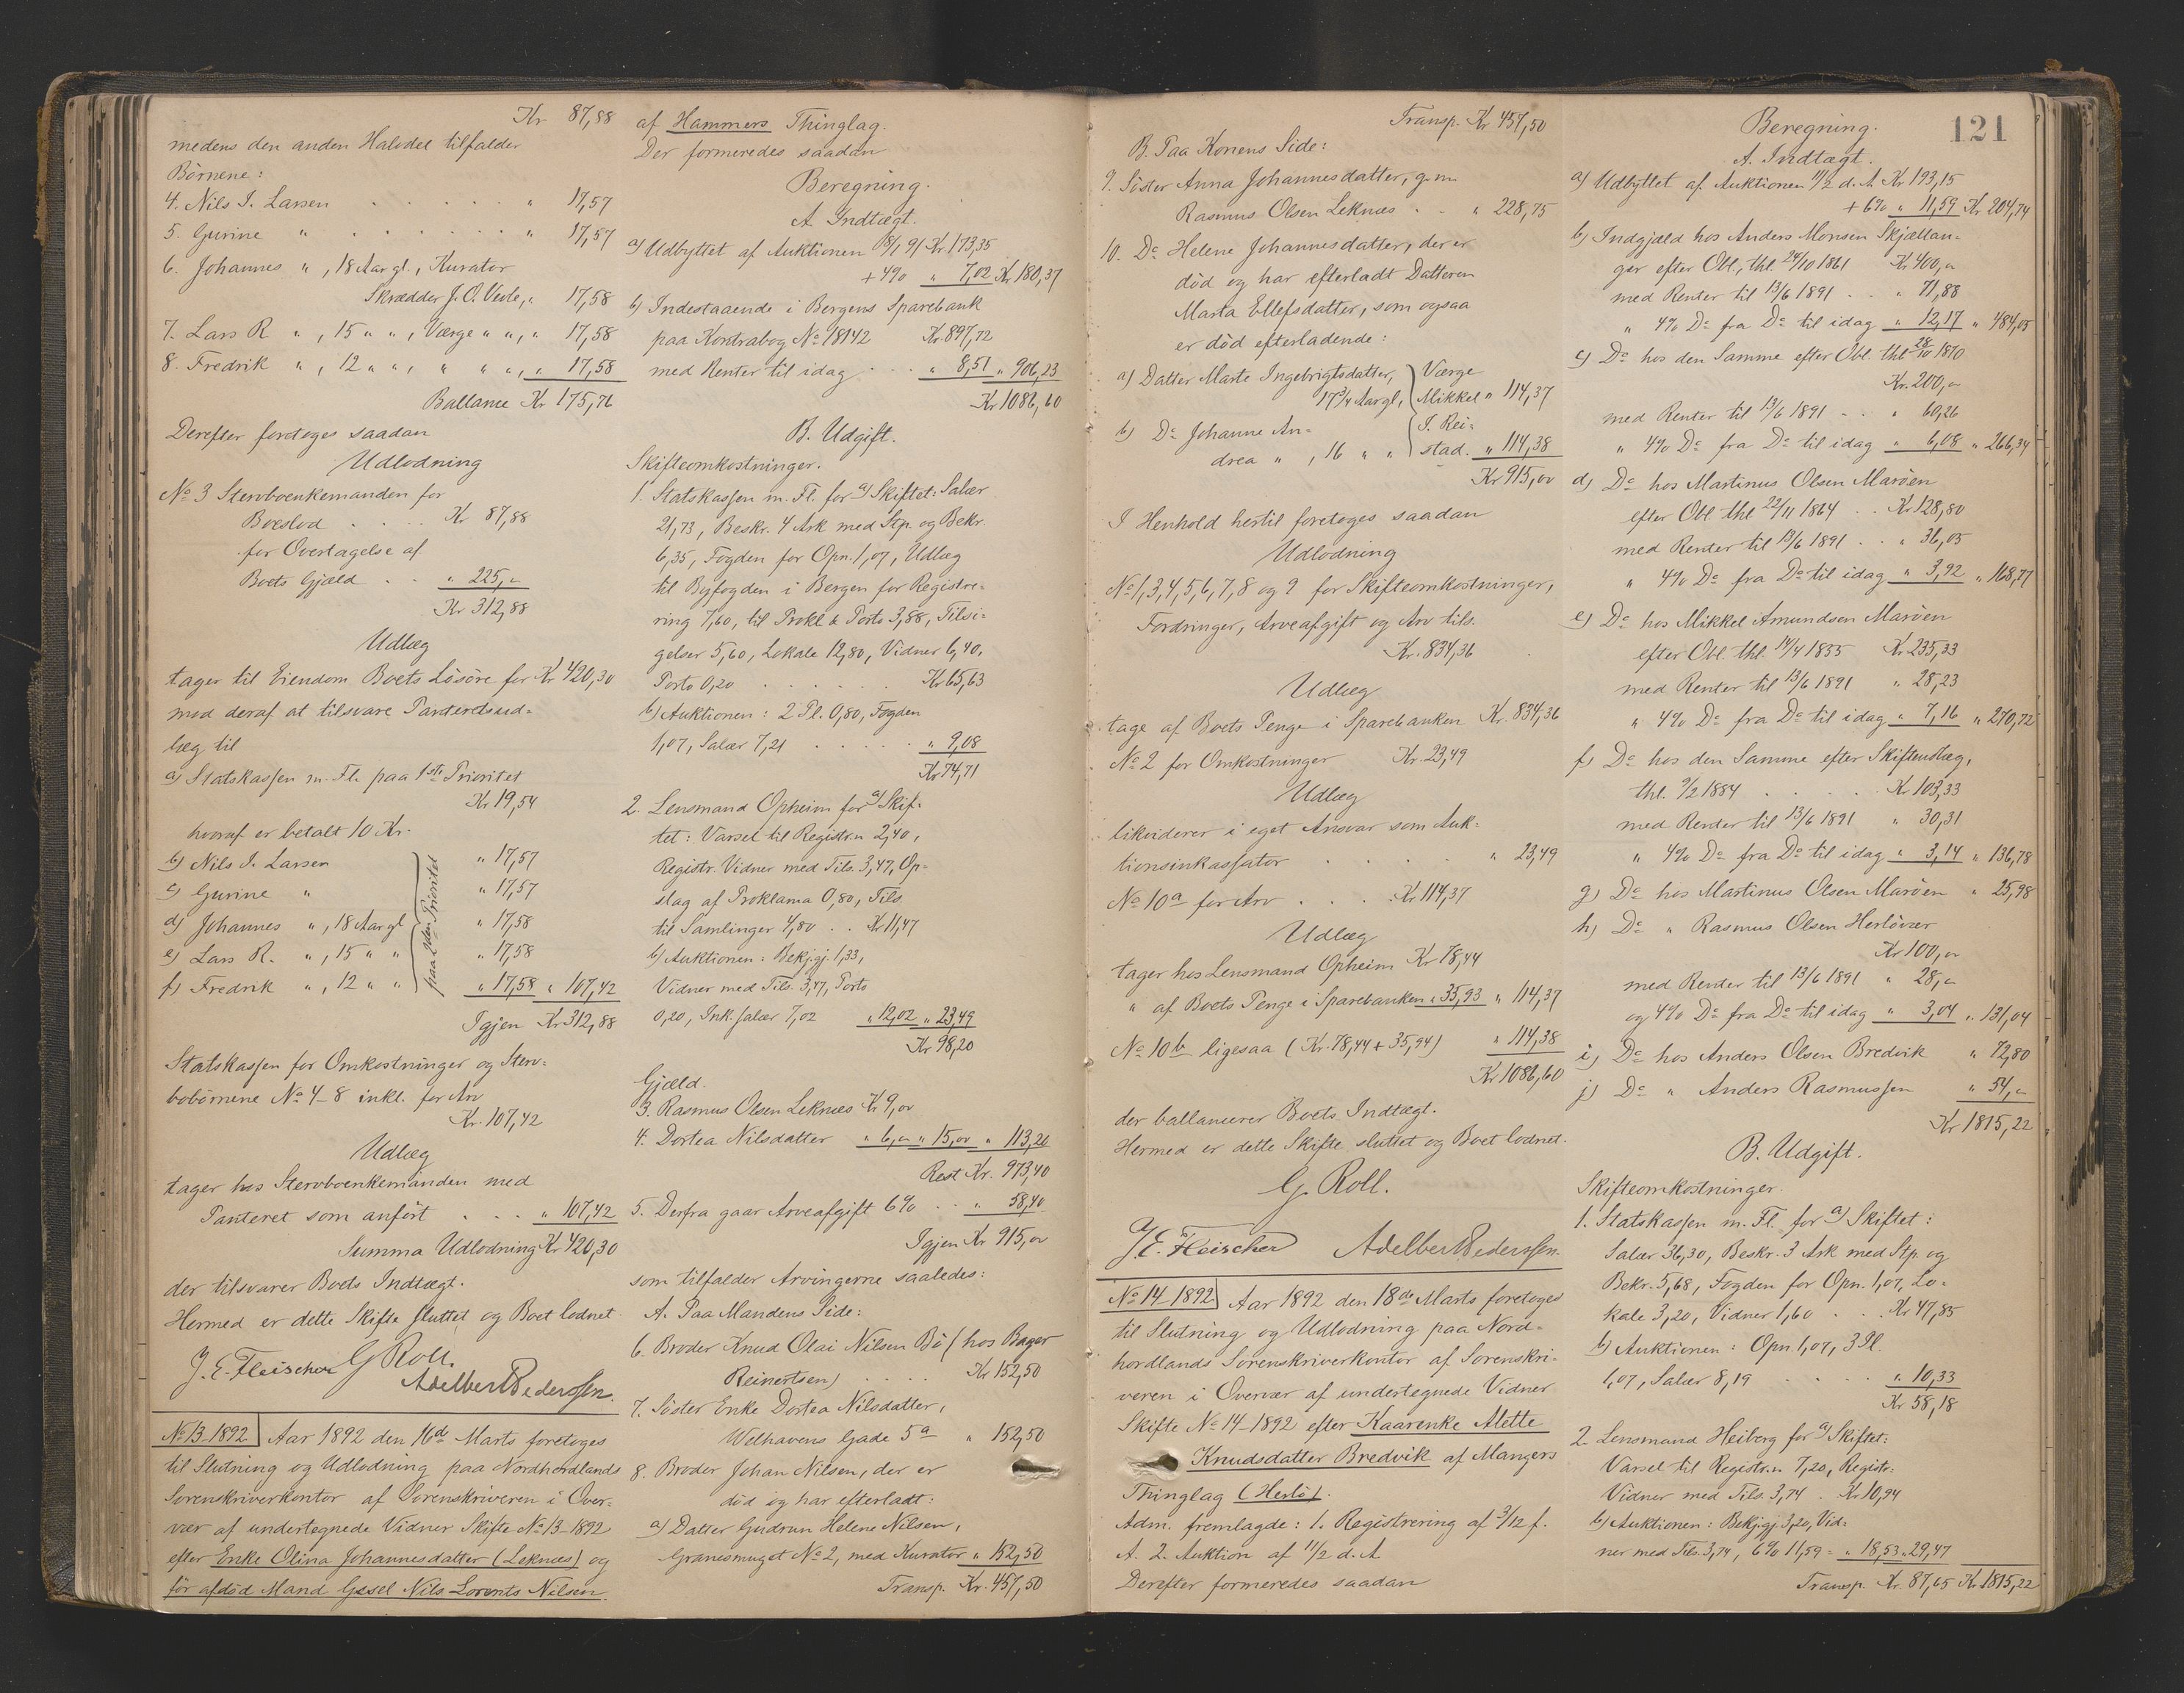 Kr 87,88
medens den anden Halvdel tilfalder
Börnene:
4. Nils I. Larsen . . . . " 17,57
5. Gurine " . . . . " 17,57
6. Johannes ", 18 Aar gl., Kurator
Skrædder J. O. Vevle, " 17,58
7. Lars R. ", 15 " ", Værge " ", " 17,58
8. Fredrik ", 12 " ", " " ", " 17,58
Ballance Kr 175,76
Derefter foretoges saadan
Udlodning
No 3 Stervboenkemanden for
Boeslod . . . Kr 87,88
for Overtagelse af
Boets Gjæld . . " 225,"
Kr 312,88
Udlæg
tager til Eiendom Boets Lösöre for Kr 420,30
mod deraf at tilsvare Panteretsud-
læg til
a) Statskassen m. Fl. paa 1ste Prioritet
Kr 19,54
hvoraf er betalt 10 Kr.
b) Nils I. Larsen " 17,57
c) Gurine " " 17,57
d) Johannes ", 18 Aar gl " 17,58
e) Lars R. ", 15 " " " 17,58
f) Fredrik ", 12 " " " 17,58 " 107,42
paa 2den Prioritet
Igjen Kr 312,88
Statskassen for Omkostninger og Sterv-
bobörnene No 4-8 inkl. for Arv
Kr. 107,42
Udlæg
tager hos Stervboenkemanden med
Panteret som anfört . . . " 107,42
Summa Udlodning Kr 420,30
der tilsvarer Boets Indtægt.
Hermed er dette Skifte sluttet og Boet lodnet.
G Roll.
J. E. Fleischer Adelbert Pederssen.
No 13-1892 Aar 1892 den 16de Marts foretoges
til Slutning og Udlodning paa Nordhordlands
Sorenskriverkontor af Sorenskriveren i Over-
vær af undertegnede Vidner Skifte No 13-1892
efter Enke Olina Johannesdatter (Leknæs) og
för afdöd Mand Gjæsel Nils Lorents Nilsen
af Hammers Thinglag.
Der formeredes saadan
Beregning.
A Indtægt.
a) Udbyttet af Auktionen 18/1 91 Kr. 173,35
+ 4% " 7,02 Kr. 180,37
b) Indestaaende i Bergens Sparebank
paa Kontrabog No 18142 Kr. 897,72
med Renter til idag . . . " 8,51 " 906,23
Kr 1086,60
B. Udgift.
Skifteomkostninger.
1. Statskassen m. Fl. for a) Skiftet: Salær
21,73, Beskr. 4 Ark med Stp. og Bekr.
6,35, Fogden for Opn. 1,07, Udlæg
til Byfogden i Bergen for Registre-
ring 7,60, til Prokl & Porto 3,88, Tilsi-
gelser 5,60, Lokale 12,80, Vidner 6,40,
Porto 0,20 . . . . Kr 65,63
b) Auktionen: 2 Pl. 0,80, Fogden
1,07, Salær 7,21 . . . . " 9,08
Kr 74,71
2. Lensmand Opheim for a) Skif-
tet: Varsel til Registr.n 2,40,
Registr. Vidner med Tils. 3,47, Op-
slag af Proklama 0,80, Tils.
til Samlinger 4,80 . . Kr 11,47
b) Auktionen: Bekj.gj. 1,33,
Vidner med Tils. 3,47, Porto
0,20, Ink. salær 7,02 " 12,02 " 23,49
Kr 98,20
Gjæld.
3. Rasmus Olsen Leknæs Kr 9,00
4. Dortea Nilsdatter " 6," " 15,00 " 113,20
Rest Kr. 973,40
5. Derfra gaar Arveafgift 6% . . " 58,40
Igjen Kr 915,00
som tilfalder Arvingerne saaledes:
A. Paa Mandens Side:
6. Broder Knud Olai Nilsen Bö (hos Bager
Reinertsen) . . . . Kr 152,50
7. Söster Enke Dortea Nilsdatter,
Welhavens Gade 5a " 152,50
8. Broder Johan Nilsen, der er
död og har efterladt:
a) Datter Gudrun Helene Nilsen,
Granesmuget No 2, med Kurator " 152,50
Transp. Kr. 457,50
Transp. Kr 457,50
B. Paa Konens Side:
9. Söster Anna Johannesdatter, g. m.
Rasmus Olsen Leknæs . . " 228,75
10. Do Helene Johannesdatter, der er
död og har efterladt Datteren
Marta Ellefsdatter, som ogsaa
er död efterladende:
a) Datter Marte Ingebrigtsdatter, Værge
17 3/4 Aar gl, Mikkel " 114,37
b) Do Johanne An- I. Rei-
drea ", 16 " " stad. " 114,38
Kr 915,00
I Henhold hertil foretoges saadan
Udlodning
No 1, 3, 4, 5, 6, 7, 8 og 9 for Skifteomkostninger,
Fordringer, Arveafgift og Arv tils.
Kr. 834,36
Udlæg
tage af Boets Penge i Sparebanken Kr. 834,36
No 2 for Omkostninger Kr. 23,49
Udlæg
likviderer i eget Ansvar som Auk-
tionsinkassator . . . . " 23,49
No 10a for Arv . . . Kr 114,37
Udlæg
tager hos Lensmand Opheim Kr 78,44
" af Boets Penge i Sparebanken " 35,93 " 114,37
No 10b ligesaa (Kr. 78,44 + 35,94) " 114,38
Kr 1086,60
der ballancerer Boets Indtægt.
Hermed er dette Skifte sluttet og Boet lodnet.
G. Roll.
J. E. Fleischer Adelbert Pederssen.
No 14-1892 Aar 1892 den 18de Marts foretoges
til Slutning og Udlodning paa Nord-
hordlands Sorenskriverkontor af Sorenskri-
veren i Overvær af undertegnede Vidner
Skifte No 14-1892 efter Kaarenke Alette
Knudsdatter Bredvik af Mangers
Thinglag (Herlö).
Adm. fremlagde: 1. Registrering af 3/12 f.
A. 2. Auktion af 11/2 d. A
Derefter formeredes saadan
121
Beregning.
A. Indtægt.
a) Udbyttet af Auktionen 11/2 d. A. Kr 193,15
+ 6% " 11,59 Kr 204,74
b) Indgjæld hos Anders Monsen Skjællan-
ger efter Obl., thl. 24/10 1861 Kr 400,"
med Renter til 13/6 1891 . . " 71,88
" 4% Do fra Do til idag " 12,17 " 484,05
c) Do hos den Samme efter Obl. thl 28/10 1870
Kr. 200,"
med Renter til 13/6 1891 . . " 60,26
" 4% Do fra Do til idag " 6,08 " 266,34
d) Do hos Martinus Olsen Maröen
efter Obl. thl 22/11 1864 . . Kr 128,80
med Renter til 13/6 1891 . . " 36,05
" 4% Do fra Do til idag " 3,92 " 168,77
e) Do hos Mikkel Amundsen Maröen
efter Obl. thl. 14/4 1855 Kr 235,33
med Renter til 13/6 1891 " 28,23
" 4% Do fra Do til idag " 7,16 " 270,72
f) Do hos den Samme efter Skifteudlæg,
thl. 9/2 1884 . . . . Kr 103,33
med Renter til 13/6 1891 " 30,31
" 4% Do fra Do til idag " 3,14 " 136,78
g) Do hos Martinus Olsen Maröen " 25,98
h) Do " Rasmus Olsen Herlövær
Kr 100,00
med Renter til 13/6 1891 " 28,"
og 4% Do fra Do til idag " 3,04 " 131,04
i) Do hos Anders Olsen Bredvik " 72,80
j) Do " Anders Rasmussen " 54,"
Kr 1815,22
B. Udgift.
Skifteomkostninger.
1. Statskassen m. Fl. for a) Skiftet:
Salær 36,30, Beskr. 3 Ark med Stp. og
Bekr. 5,68, Fogden for Opn. 1,07, Lo-
kale 3,20, Vidner 1,60 . . Kr 47,85
b) Auktionen: Opn. 1,07, 3 Pl.
1,07, Salær 8,19 . . . . " 10,33
Kr 58,18
2. Lensmand Heiberg for a) Skiftet:
Varsel til Registr.n 7,20, Registr.
Vidner med Tils. 3,74 . Kr 10,94
b) Auktionen: Bekj.gj. 3,20, Vid-
ner med Tils. 3,74, 6% 11,59 = " 18,53 " 29,47
Transp. Kr. 87,65 Kr 1815,22